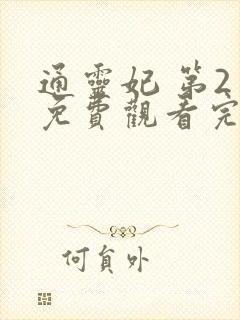 通靈妃 第2
免費觀看完
何貟外